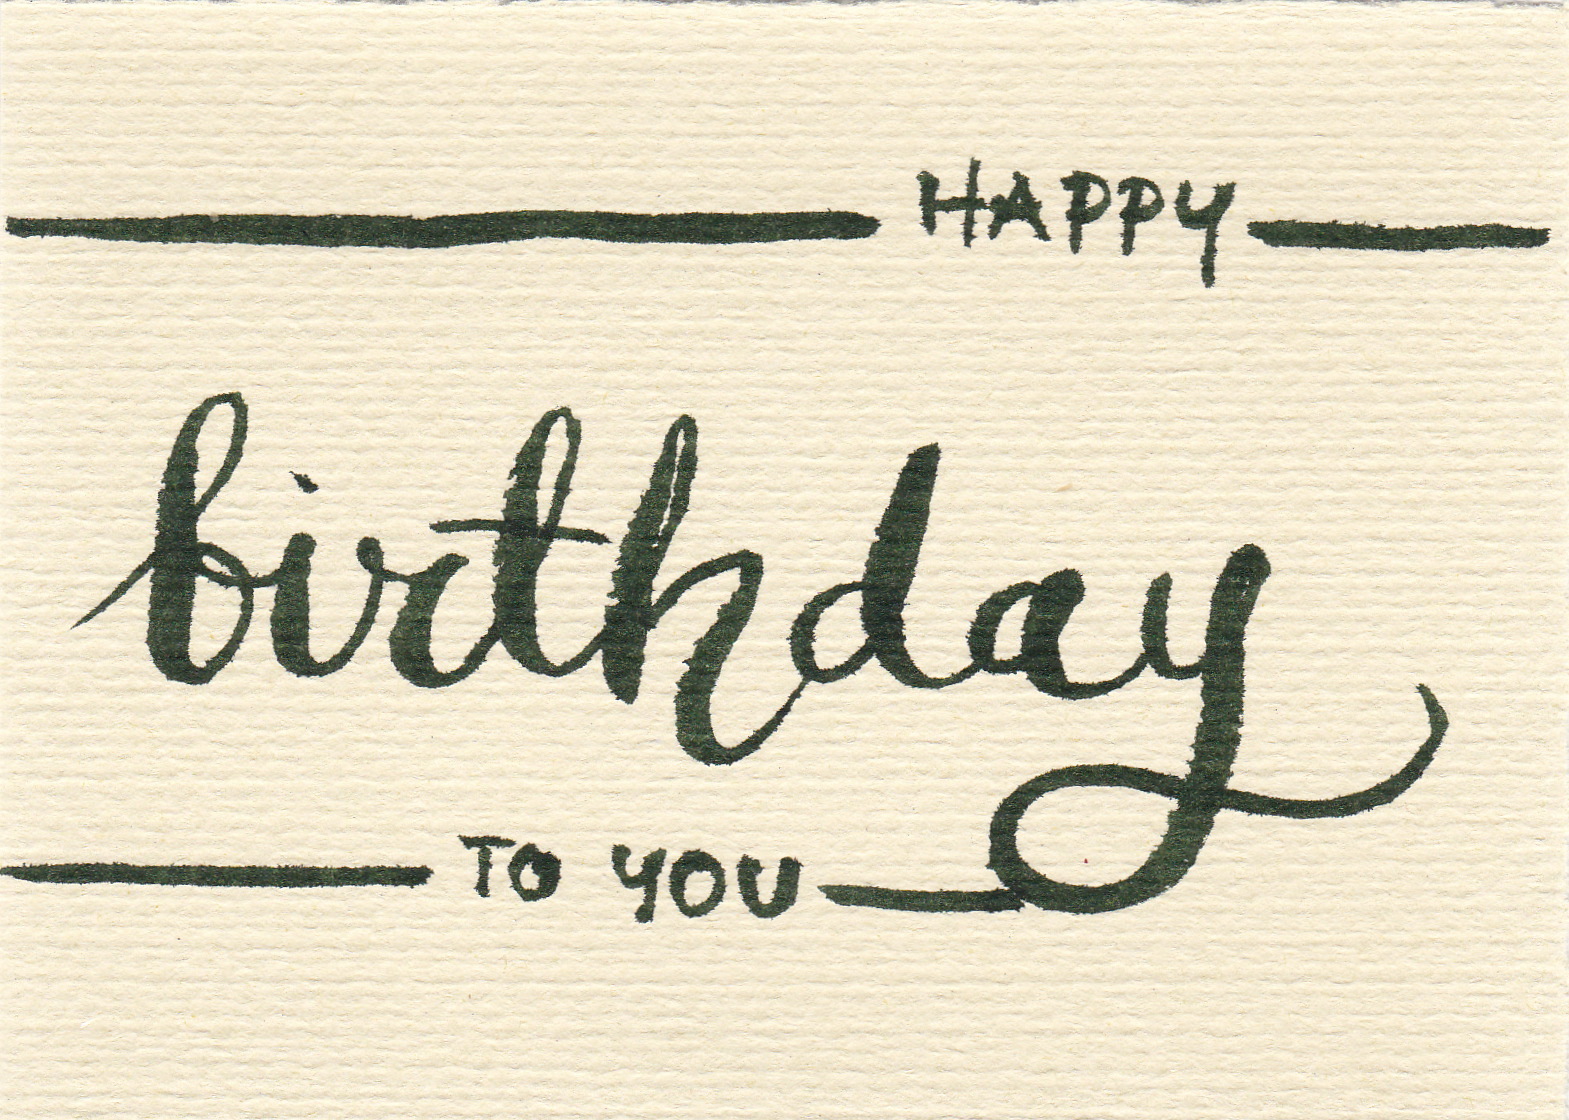 HAPPY
birthday
TO YOU